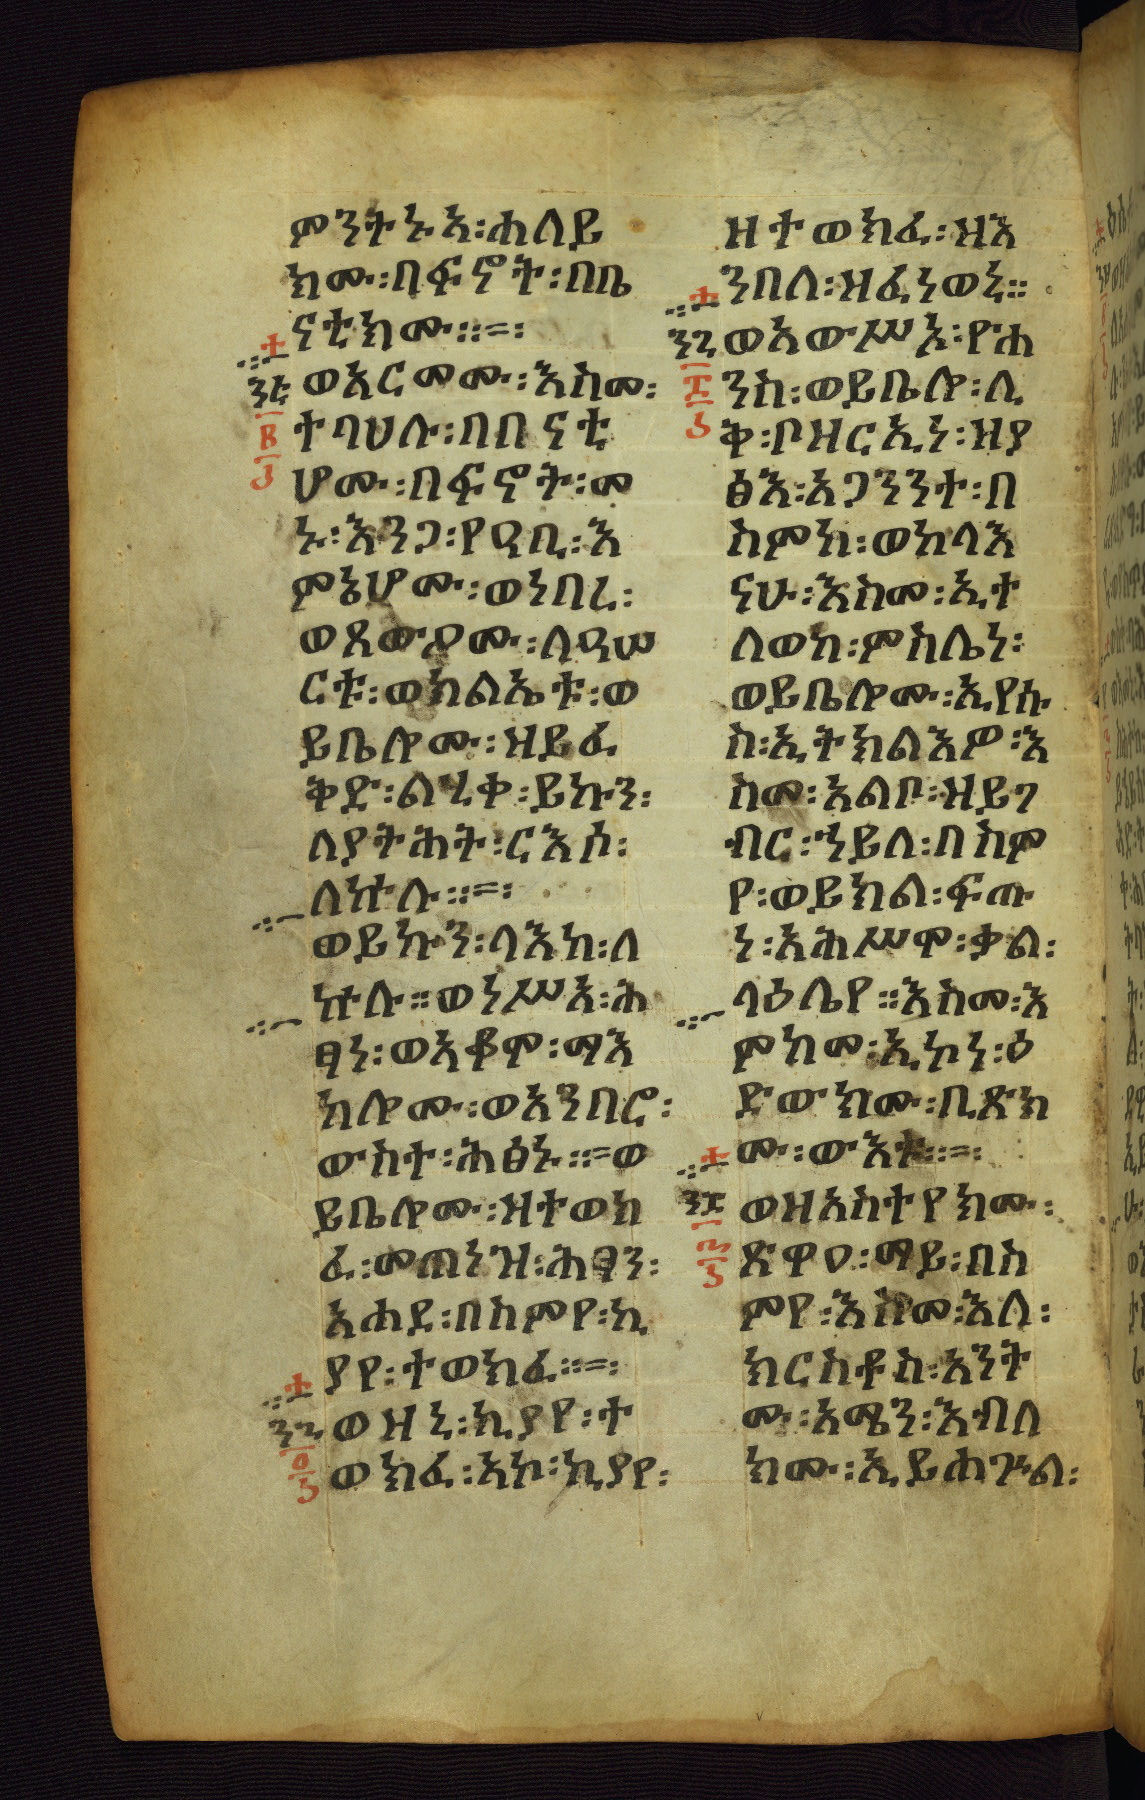 ምንትኑ፡ አ፡ሐለይ
ክሙ፡በፍኖት፡በቤ
ናቲክሙ፡፡=፡
ወአርመሙ፡እስመ፡
ተባህሉ፡በበ ናቲ
ሆሙ፡በፍኖት፡መ
ኑ፡እንጋ፡የዓቢ፡እ
ምኔሆሙ፡ወነበረ፡
ወጸውዖሙ፡ለዓሠ
ርቱ፡ወክልኤቱ፡ወ
ይቤሎሙ፡ዝይፈ
ቅድ፡ልሂቀ፡ይኩን፡
ለያትሕት፡ርእሶ፡
ለኵሉ፡፡=፡
ወይኩን፡ላእከ፡ለ
ኵሉ።ወነሥአ፡ሕ
ፃነ፡ወአቆሞ፡ማእ
ከሎሙ፡ወአንበሮ፡
ውስተ፡ሕፅኑ፡፡=ወ
ይቤሎሙ፡ዝተወክ
ፈ፡መጠነዝ፡ሕፃን፡
አሐደ፡በስምየ፡ኪ
ያየ፡ተወክፈ፡፡=፡
ወዝኒ፡ኪያየ፡ተ
ወክፈ፡አኮ፡ኪያየ፡
ዘተወክፈ፡ዝእ
ንበለ፡ዝፈነወኒ።
ወአውሥአ፡ዮሐ
ንስ፡ወይቤሎ፡ሊ
ቅ፡ቦዘርኢነ፡ዝያ
ፅእ፡አጋንንተ፡በ
ስምከ፡ወከላእ
ናሁ፡እስመ፡ኢተ
ለወከ፡ምስሌነ፡
ወይቤሎሙ፡ኢየሱ
ስ፡ኢትክልእዎ፡እ
ስመ፡አልቦ፡ዝይገ
ብር፡ኀይለ፡በስም
የ፡ወይክል፡ፍጡ
ነ፡አሕሥሞ፡ቃል፡
ላዕሌየ።እስመ፡እ
ምከመ፡ኢኮነ፡ዕ
ድውክሙ፡ቢጽክ
ሙ፡ውእቱ፡፡=፡
ወዘአስተየክሙ፡
ጽዋዐ፡ማይ፡በስ
ምየ፡እስመ፡እለ፡
ክርስቶስ፡አንት
ሙ፡አሜን፡እብለ
ክሙ፡ኢይሐጕል፡